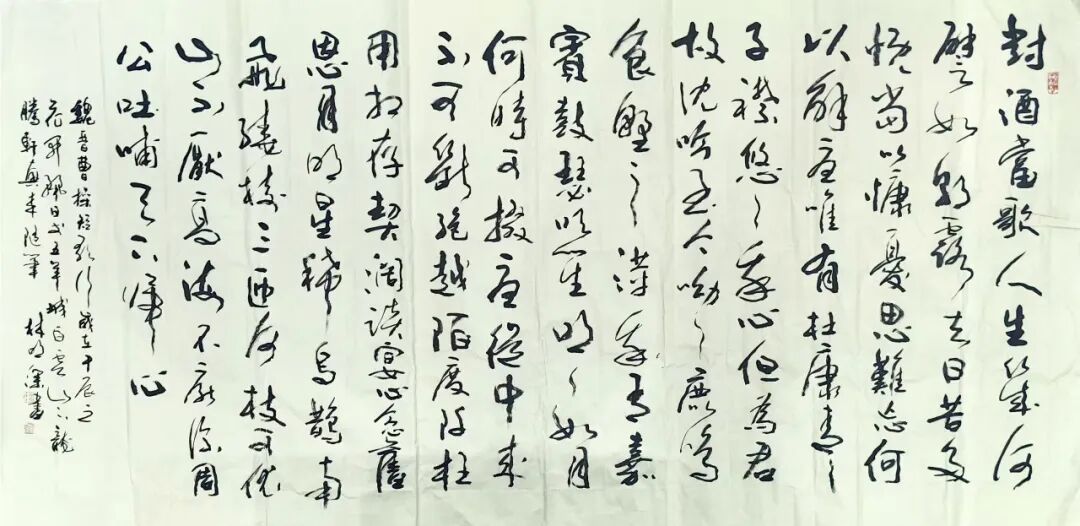 對酒當歌人生幾何
譬如朝露去日苦多
慨當以慷憂思難忘何
以解憂唯有杜康青々
子襟悠々我心但為君
故沈吟至今呦々鹿鳴
食野之蘋我有嘉
賓鼓瑟吹笙明々如月
何時可掇憂從中來
不可斷絕越陌度阡枉
用相存契闊談宴心念舊
恩月明星稀烏鵲南
飛繞樹三匝何枝可依
山不厭高海不厭深周
公吐哺天下歸心
魏晉曹操短歌行歲在壬辰之
花日羊城白雲山之龍
騰軒興來隨筆 林書